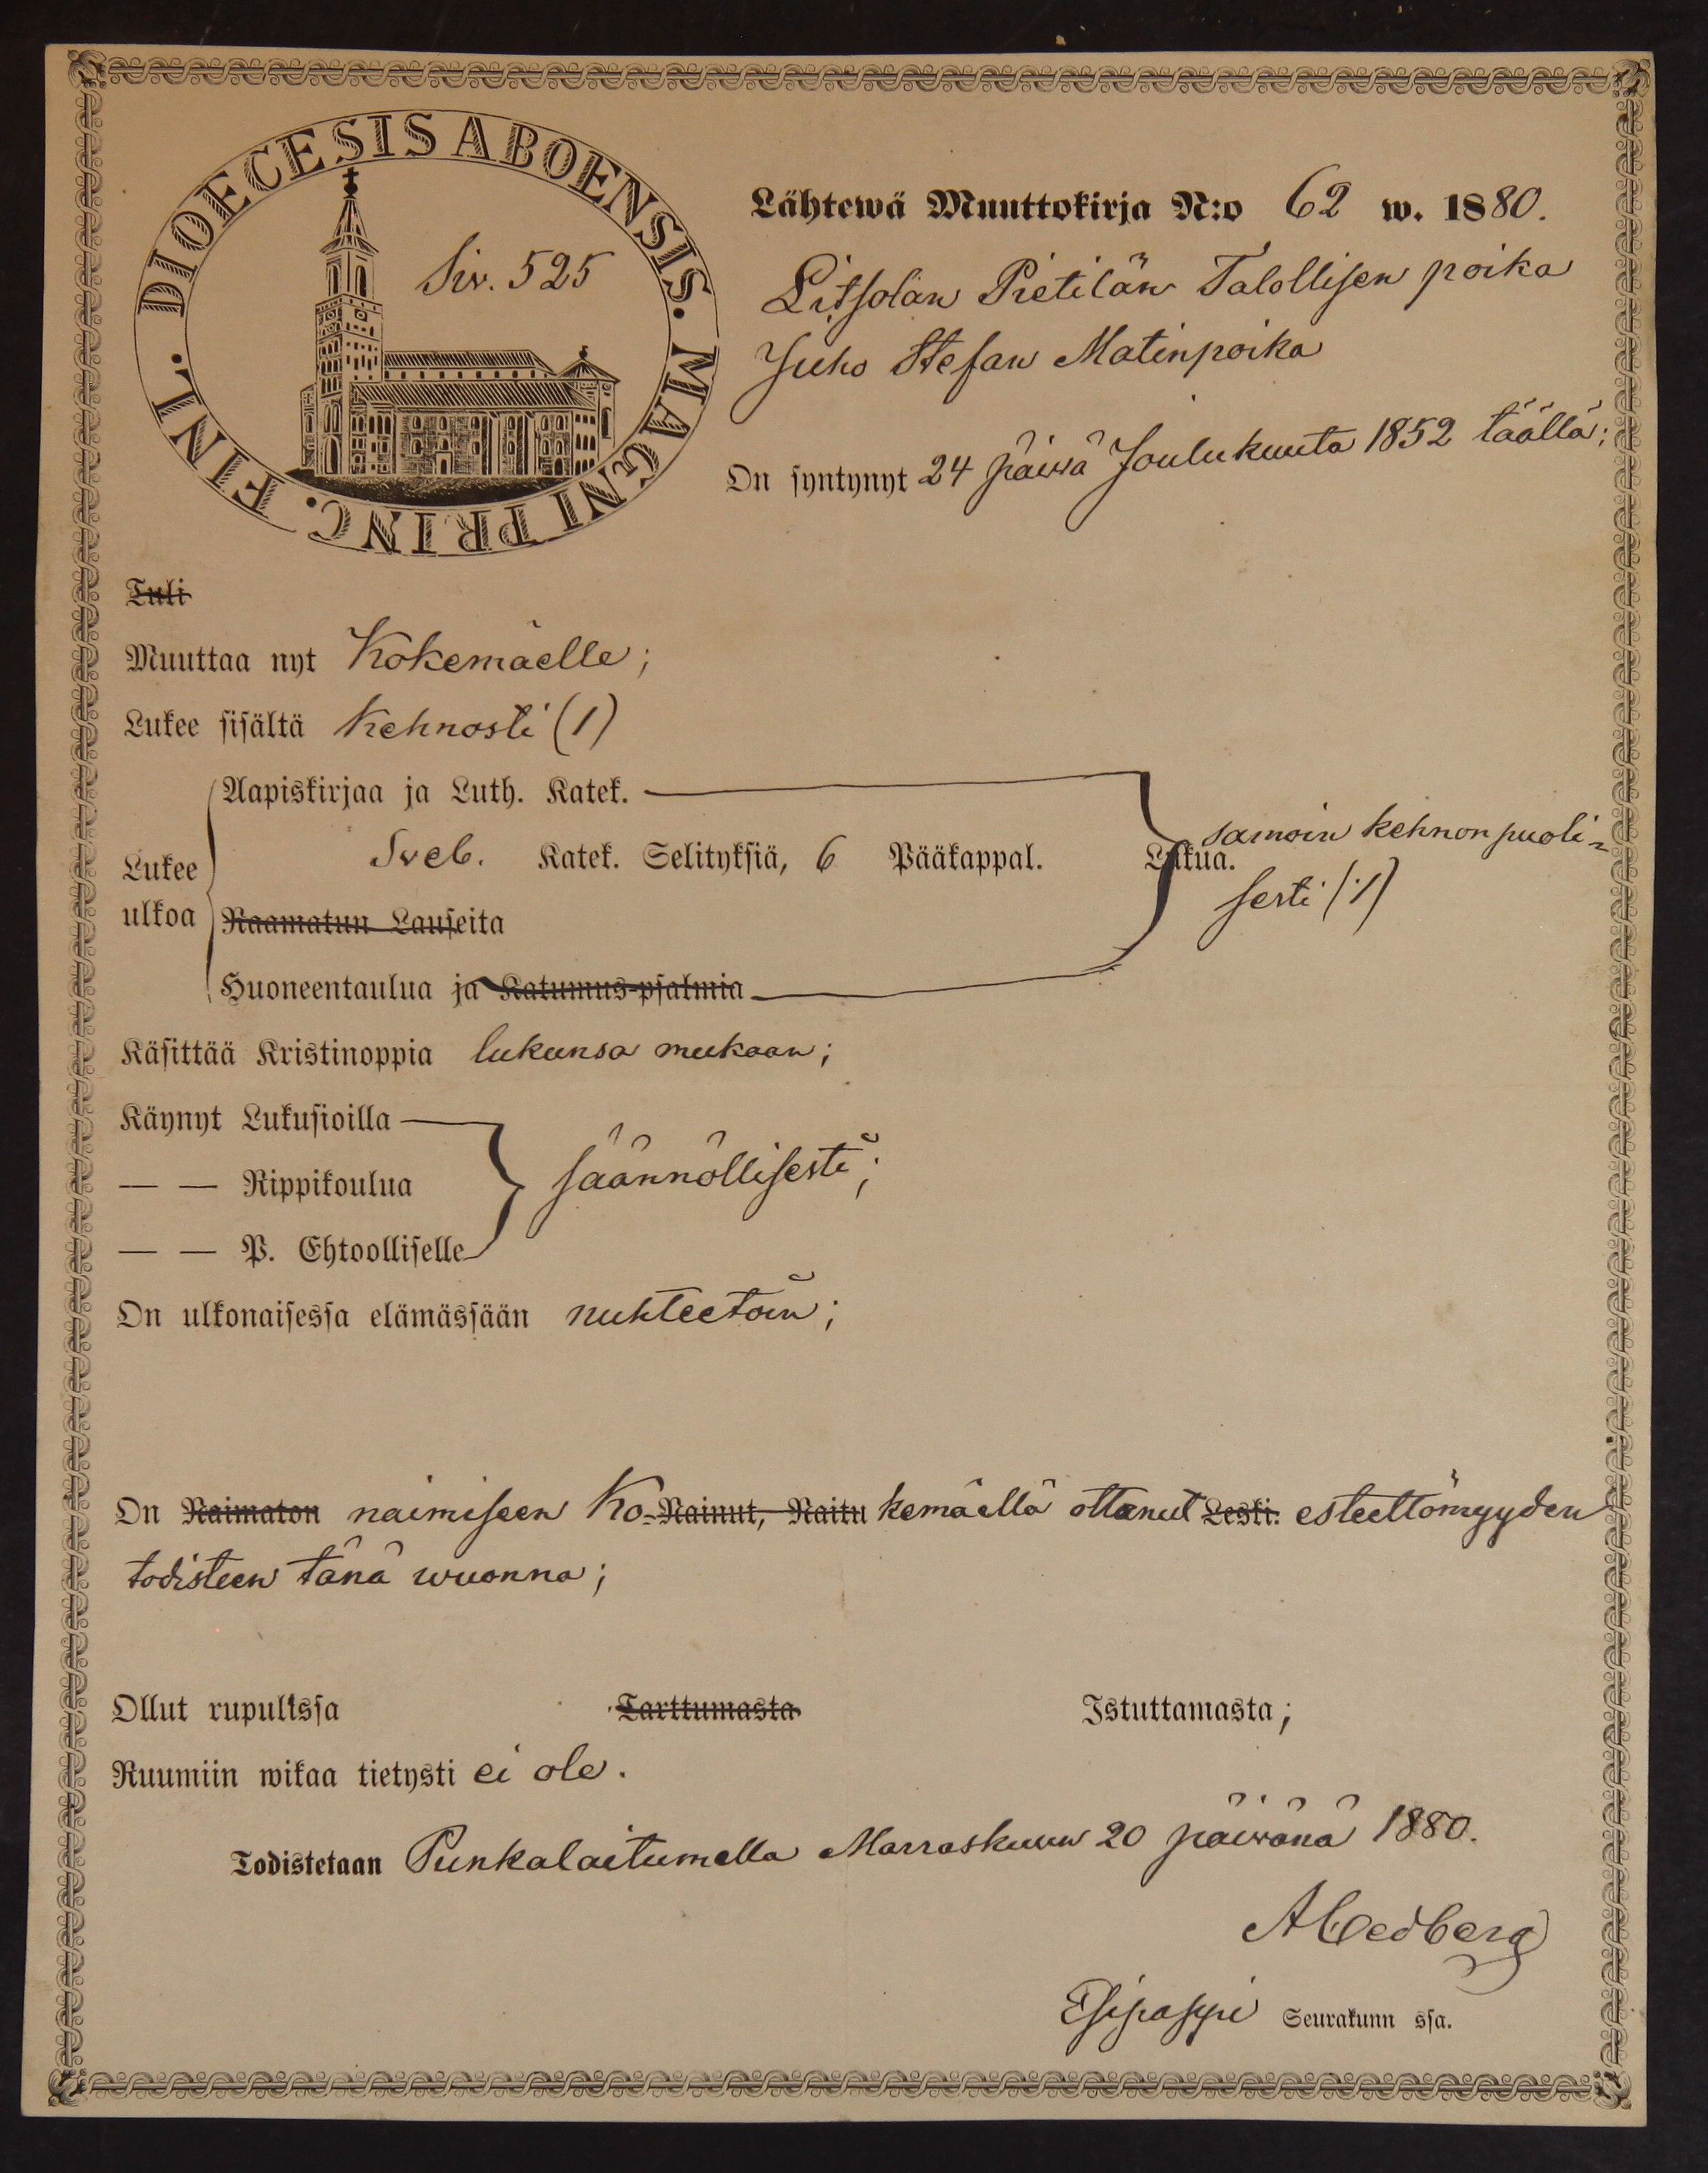 DIOECESIS ABOENSIS. MAGNI PRINC. FINL.
Siv. 525
Lähtewä Muuttokirja N:o 62 w. 1880.
Liitsolan Pietilän Talollisen poika
Juho Stefan Matinpoika
On syntynyt 24 päivä Joulukuuta 1852 täällä;
Tuli
Muuttaa nyt Kokemäelle;
Lukee sisältä kehnosti (1)
Aapiskirjaa ja Luth. Katek.
Lukee ulkoa
Sveb. Katek. Selityksiä, 6 Pääkappal. Lukua. samoin kehnonpuoli-
Raamatun Lauseita sesti (1)
Huoneentaulua ja Katumus-psalmia
Käsittää Kristinoppia lukunsa mukaan;
Käynyt Lukusioilla
— — Rippikoulua säännöllisesti;
— — P. Ehtoolliselle
On ulkonaisessa elämässään nuhteetoin;
On Naimaton naimiseen Ko- Nainut, Naitu kemäellä ottanut Leski. esteettömyyden
todisteen tänä wuonna;
Ollut rupulissa Tarttumasta Istuttamasta;
Ruumiin wikaa tietysti ei ole.
Todistetaan Punkalaitumella Marraskuun 20 päivänä 1880.
Esipappi Seurakunn ssa.